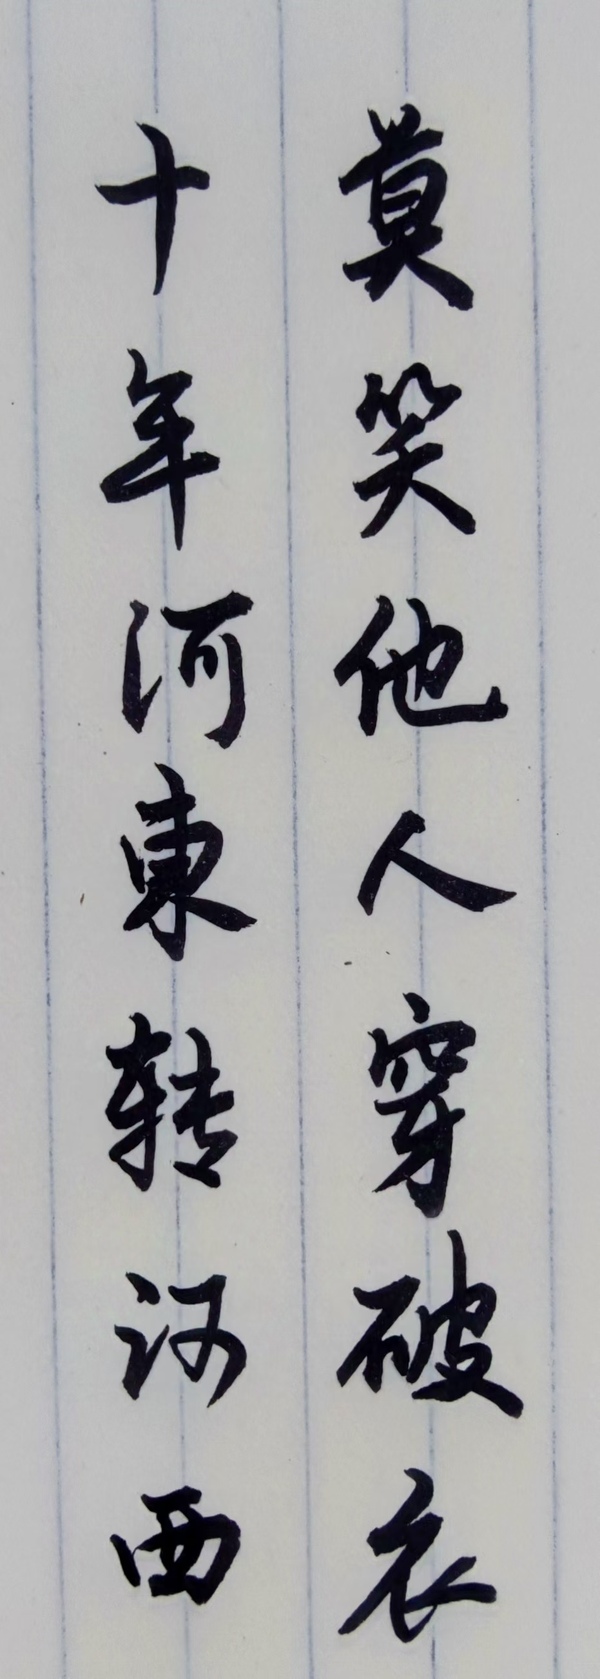 莫笑他人穿破衣
十年河東转河西